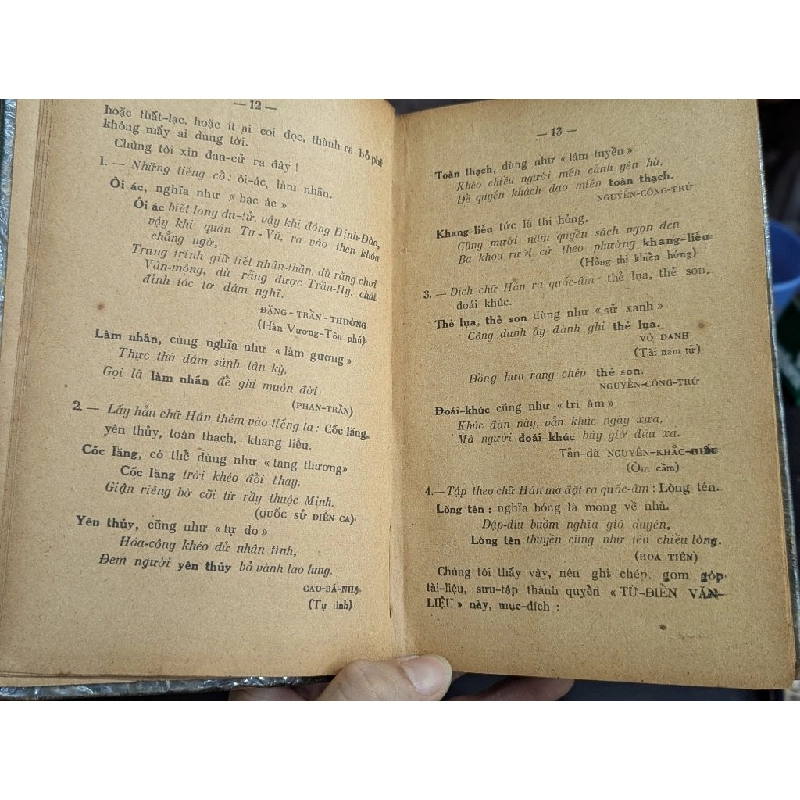 — 12 —
hoặc thất-lạc, hoặc ít ai coi đọc, thành ra bỏ phế
không mấy ai dùng tới.
Chúng tôi xin đan-cử ra đây !
1. — Những tiếng cổ : ôi-ác, làm nhân.
Ôi ác, nghĩa như « bạc ác »
Ôi ác biết lòng du-tử, vậy khi đóng Định-Đúc,
vậy khi quán Tư-Vũ, ra vào then khóa
chẳng ngờ.
Trung trinh giữ tiết nhân-thần, dù rằng chơi
Vân-mộng, dù rằng được Trần-Hy,
đinh tóc tơ dám nghĩ.
ĐẶNG-TRẦN-THƯỜNG
(Hàn Vương-Tôn phú)
Làm nhân, cũng nghĩa như « làm gương »
Thực thơ dám sánh tân kỳ,
Gọi là làm nhân để ghi muôn đời
(PHAN-TRẦN)
2. — Lấy hẳn chữ Hán thêm vào tiếng ta : Cốc lăng,
yên thủy, toàn thạch, khang liêu.
Cốc lăng, có thể dùng như «tang thương»
Cốc lăng trời khéo đổi thay,
Giận riêng bờ cõi từ rày thuộc Minh.
(QUỐC SỬ DIỄN CA)
Yên thủy, cũng như « tự do »
Hóa-công khéo dử nhân tình,
Đem người yên thủy bỏ vành lao lung.
CAO-BÁ-NHẠ
(Tự tình)
— 13 —
Toàn thạch, dùng như « lâm tuyền »
Khéo chiều người mến cảnh yên hà,
Để quyến khách dạo miền toàn thạch.
NGUYỄN-CÔNG-TRỨ
Khang-liêu tức là thi hỏng.
Cũng mười năm quyển sách ngọn đèn
Ba khoa rượt cử theo phường khang-liêu.
(Hỏng thi khiển hứng)
3. — Dịch chữ Hán ra quốc-âm : thẻ lụa, thẻ son,
đoái khúc.
Thẻ lụa, thẻ son dùng như « sử xanh »
Công danh ấy dành ghi thẻ lụa.
VÔ DANH
(Tài nam tử)
Đồng hưu rang chép thẻ son.
NGUYỄN-CÔNG-TRỨ
Đoái-khúc cũng như « tri âm »
Khúc đàn này, vẫn khúc ngày xưa,
Mà người đoái khúc bây giờ đâu xa.
Tản-đà NGUYỄN-KHẮC-HIẾU
4. — Tập theo chữ Hán mà đặt ra quốc-âm : Lòng tên.
Lòng tên : nghĩa bóng là mong về nhà.
Dập-dìu buồm nghĩa gió duyên,
Lòng tên thuyền cũng như tên chiều lòng.
(HOA TIÊN)
Chúng tôi thấy vậy, nên ghi chép, gom góp
tài-liệu, sưu-tập thành quyển « TỪ-ĐIỂN VĂN-
LIỆU » này, mục-đích :